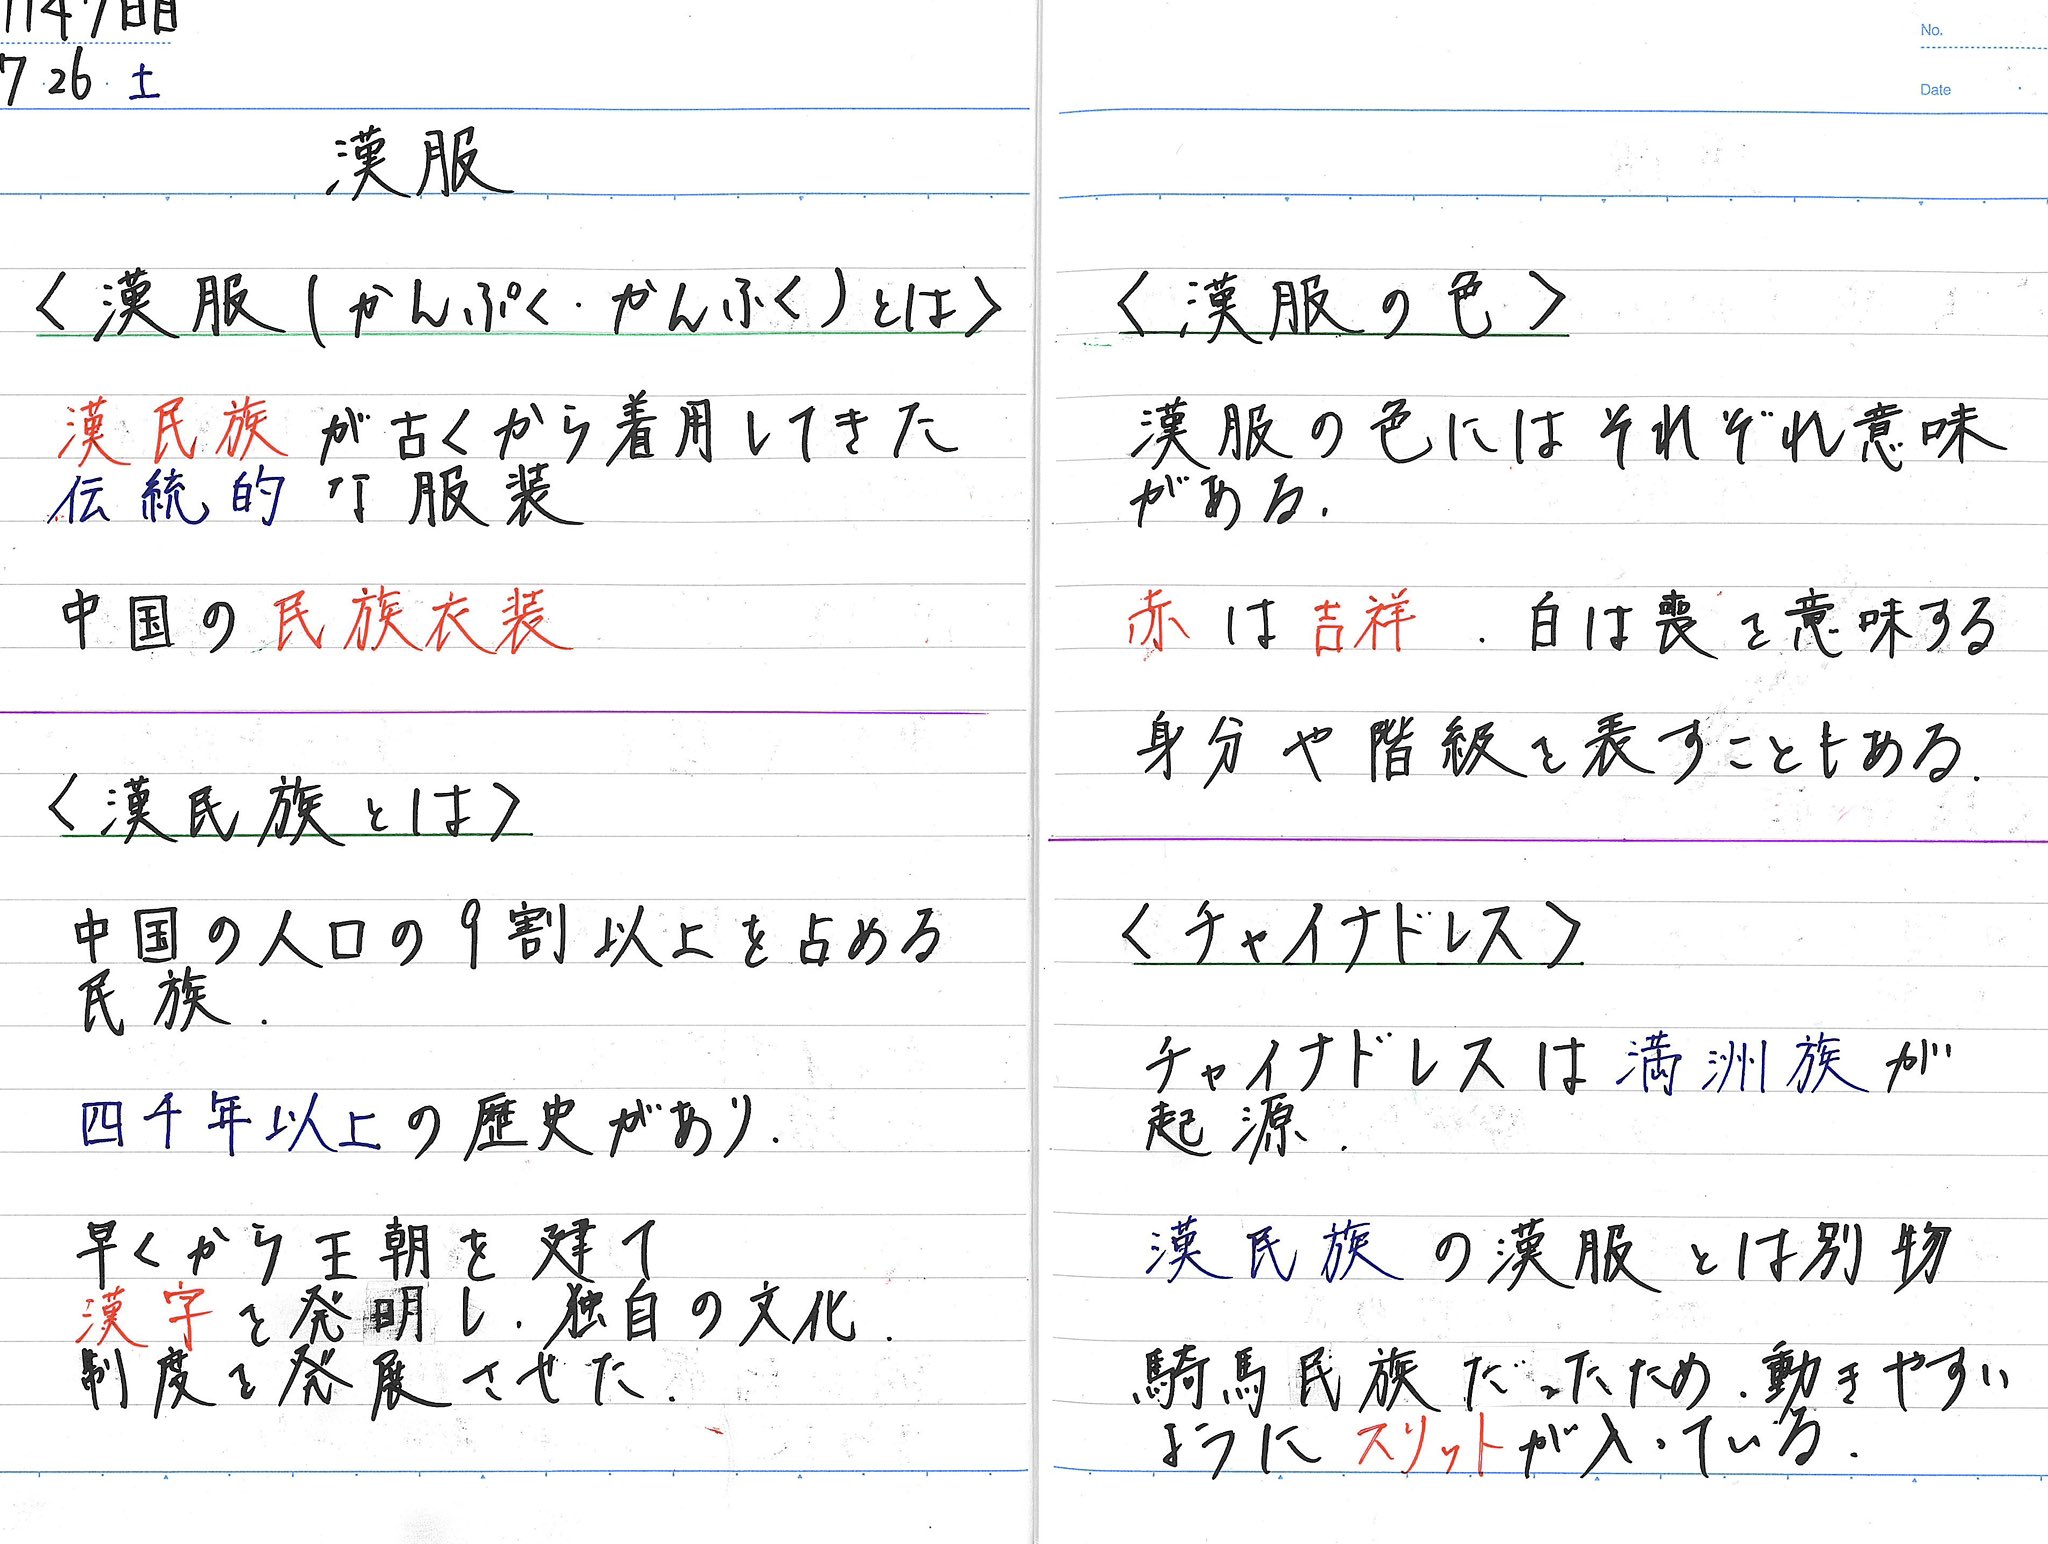 7 26 土
漢服
〈漢服(かんぷく・かんふく)とは〉
漢民族が古くから着用してきた
伝統的な服装
中国の民族衣装
〈漢民族とは〉
中国の人口の9割以上を占める
民族.
四千年以上の歴史があり.
早くから王朝を建て
漢字を発明し.独自の文化.
制度を発展させた.
No.
Date
〈漢服の色〉
漢服の色にはそれぞれ意味
がある.
赤は吉祥.白は喪を意味する
身分や階級を表すこともある.
〈チャイナドレス〉
チャイナドレスは満洲族が
起源.
漢民族の漢服とは別物
騎馬民族だったため.動きやすい
ようにスリットが入っている.